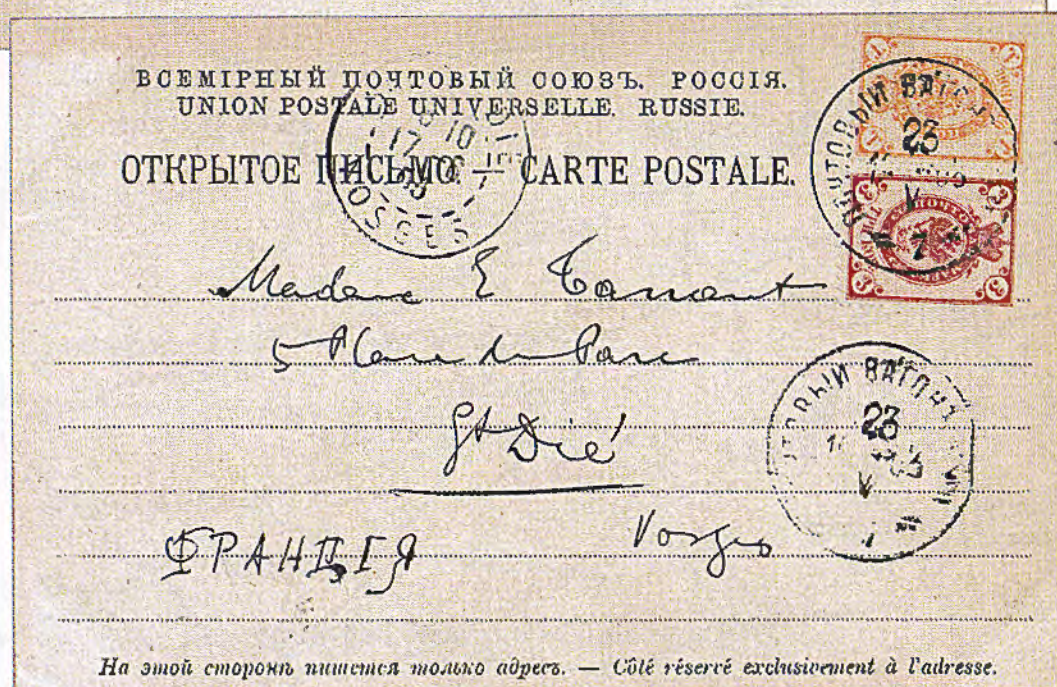 ВСЕМІРНЫЙ ПОЧТОВЫЙ СОЮЗЪ. РОССІЯ.
UNION POSTALE UNIVERSELLE. RUSSIE.
ОТКРЫТОЕ ПИСЬМО. — CARTE POSTALE.
ПОЧТОВЫЙ ВАГОНЪ
23
V
7
17
10
VOSGES
1
1
1
1
3
3
3
3
Madame E
5 Place du Parc
St Dié
Vosges
ФРАНЦІЯ
ПОЧТОВЫЙ ВАГОНЪ
23
V
7
На этой сторонѣ пишется только адресъ. — Côté réservé exclusivement à l'adresse.